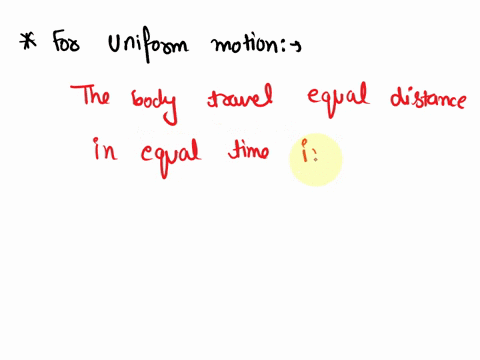 * For uniform motion:→
The body travel equal distance
in equal time i